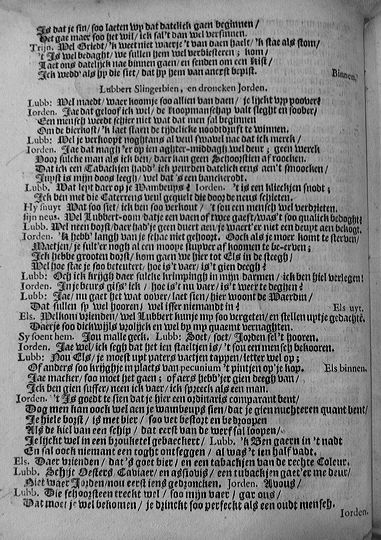 Is dat je sin/ soo laeten wy dat datelick gaen beginnen/
Het gae maer soo het wil/ ick sal't dan wel versinnen.
Trijn. Wel Griedt/ 'k weet niet waerje 't van daen haelt/ 'k stae als stom/
't Is wel bedaght/ we sullen hem wel verbisteren; kom/
Laet ons datelijck nae binnen gaen/ en senden om een kist/
Ick wedd' als hy die siet/ dat hy hem van anxst bepist.
Binnen.
Lubbert Slingerbien, en droncken Jorden.
Lubb: Wel maedt/ waer koomje soo allien van daen/ je lijckt wp poover?
Iorden. Jae dat geloof ick wel/ de koopmanschap valt slecht en soober/
Een mensch weedt schier niet wat dat men sal beginnen
Om de bierkost/ 'k laet staen de tijdelicke nootdruft te winnen.
Lubb: Wel je verkoopt noghtans al veul swavel nae dat ick merck/
Iorden. Jae dat magh 'er op ien aghter-middagh wel deur; geen werck
Voor sulcke man als ick ben/ daer kan geen Schoorstien af roocken.
Dat ick een Taback en hadd' ick peurden datelick eens aen't smoocken/
Jnyst is mijn doos leegh/ wel dat's een banckerodt.
Lubb. Wat lept daer op je Wambeuys? Iorden. 't is een klieckjen snodt;
Ick ben mit die Caterens veul gequelt die door de neus schieten.
Hy snuyt. Wat soo siet/ ick ben soo verkout/ 't sou een mensch wel verdrieten.
sijn neus. Wel Lubbert-oom datje een vaen of twee gaeft/ was't soo qualick bedoght?
Lubb. Wel neen borst/ daer had'je geen duert aen/ je waert'er niet een deuyt aen bekogt.
Iorden. 'k hebb' langh van je schae niet gehoort. Oock als je moer komt te sterven/
Maetjen/ je sult'er nogh al een moope stuyver af koomen te be-erven;
Ick hebbe grooten dorst/ kom gaen we hier tot Els in de steegh/
Wel hoe stae je soo beteutert/ hoe is't vaer/ is't gien deegh?
Lubb: Och ick krijgh daer sulcke krimpingh in mijn darmen/ ick ben hiel verlegen!
Iorden. In je beurs gis ick/ hoe is't nu vaer/ is't weer te degen?
Lubb: Jae/ nu gaet het wat over/ laet sien/ hier woont de Waerdin/
Dat sullen jy wel hooren/ wel isser niemandt in?
Es uyt.
Els. Welkom vrienden/ wel Lubbert kuntje my soo vergeten/ en stellen uytje gedachte.
Daerje soo dickwijls vrolijck en wel by my quaemt vernaghten.
Sy soent hem. Jou malle geck. Lubb: Soet/ soet/ Jorden sel't hooren.
Iorden. Jae wel/ ick segh dat het ien staeltjen is/ 't sou een mensch bekooren.
Lubb: Nou Els/ je moest upt paters vaetjen tappen/ letter wel op;
Of anders soo krijghje in plaets van pecunium 't pintjen op je kop.
Els binnen.
Jae macker/ soo moet het gaen; of aers hebb'jer gien degh van/
Ick ben gien suffer/ neen ick vaer/ ick spreeck als een man.
Iorden. 't Is goedt te sien dat je hier een ordinaris comparant bent/
Dogh men kan oock wel aen je wambeuys sien/ dat je gien nuchteren quant bent/
Je hiele borst/ is met bier/ soo vet bestort en behoopen
Als de kiel van een schip/ dat eerst van de werf sal loopen/
Je lijckt wel in een brouketel gebaeckert/ Lubb: 'k Ben gaeren in 't nadt
En sal oock niemant een toght ontseggen/ al was't ien half vadt.
Els. Daer vrienden/ dat's goet bier/ en een tabackjen van de rechte Coleur.
Lubb. Schyt Oesters Caviaer/ en assiovis/ een tubackjen gaet'er me deur/
Niet waer Jorden/ nou eerst iens gedroncken. Iorden. Avous/
Lubb. Die schoorsteen treckt wel/ soo mijn vaer/ gar ons/
Dat moet je wel bekomen/ je drinckt soo perfeckt als een oudt mensch.
Iorden.